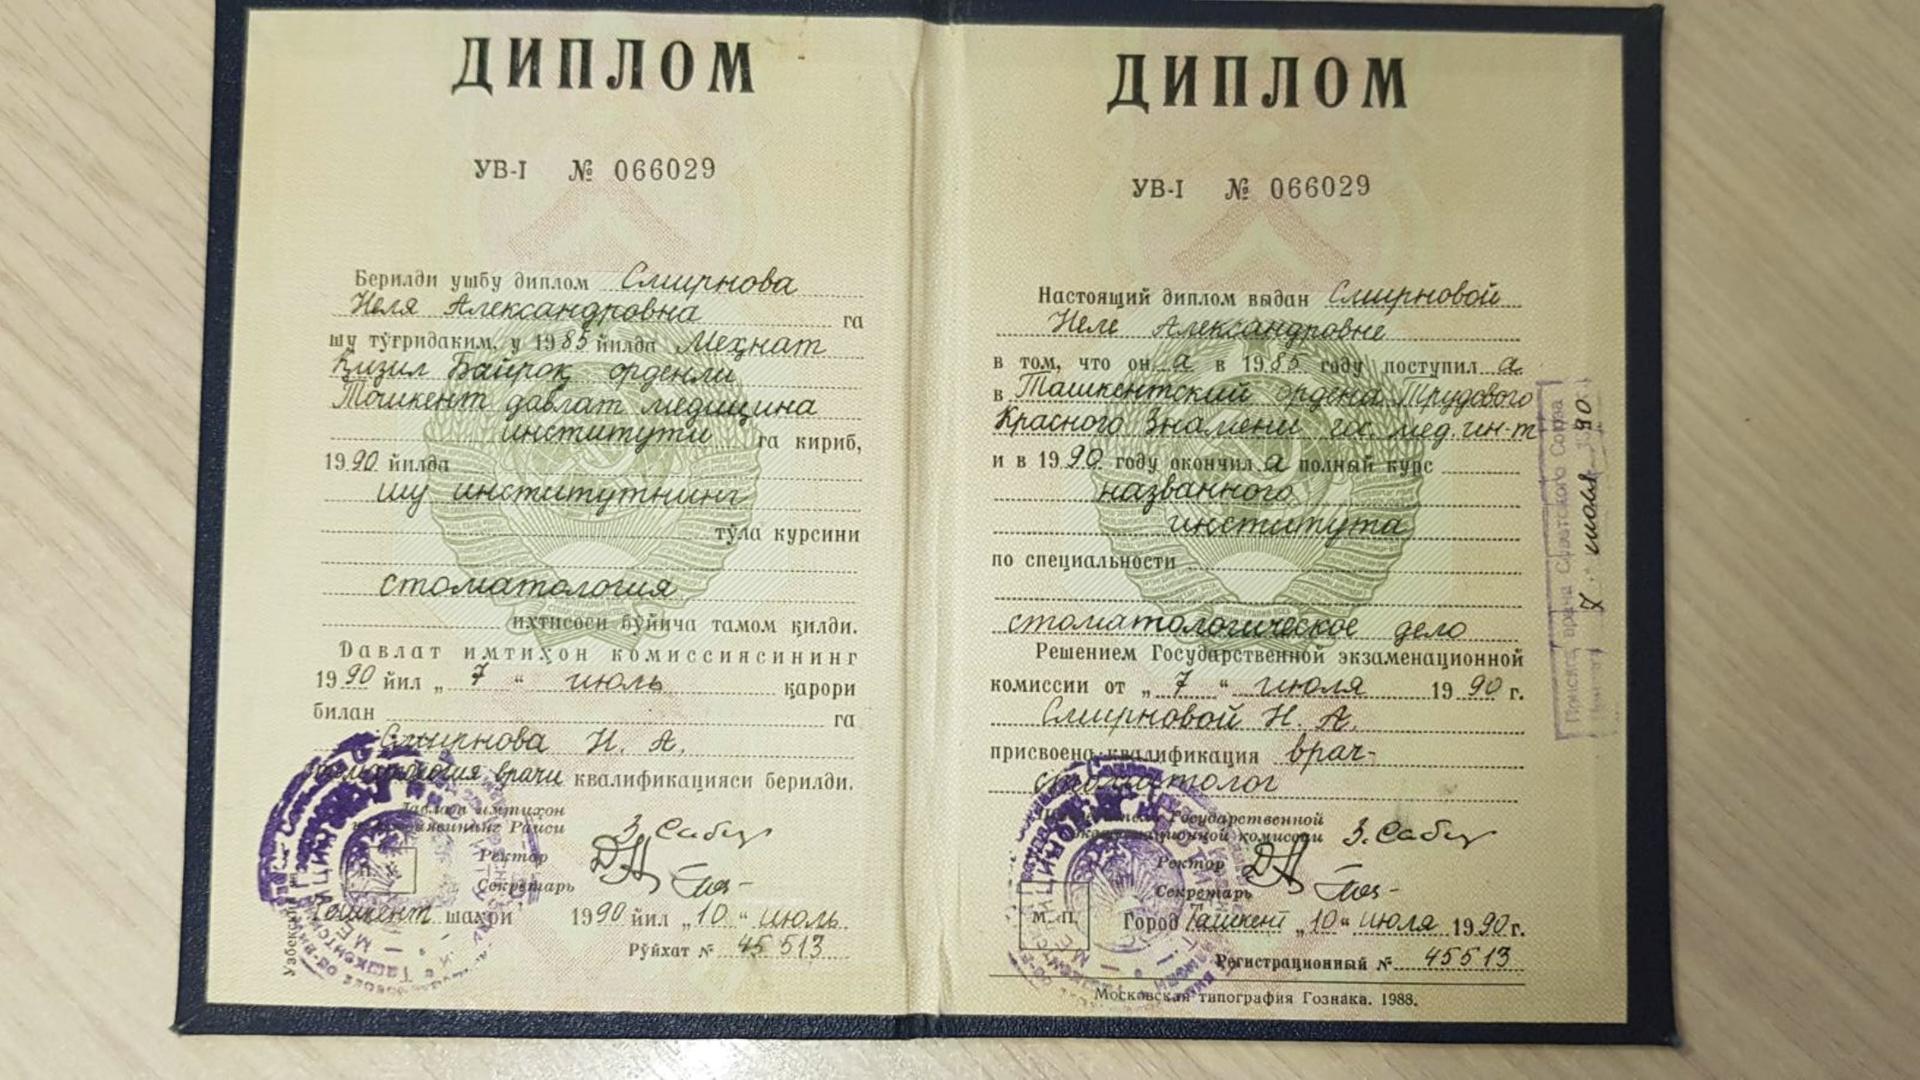 ДИПЛОМ
УВ-I № 066029
Берилди ушбу диплом Смирнова
Неля Александровна га
шу тўғридаким, у 1985 йилда Меҳнат
Қизил Байроқ орденли
Тошкент давлат медицина
институти га кириб,
1990 йилда
шу институтнинг
тўла курсини
стоматология
ихтисоси бўйича тамом қилди.
Давлат имтиҳон комиссиясининг
1990 йил „ 7 “ июль қарори
билан га
Смирнова Н. А.
стоматология врачи квалификацияси берилди.
Давлат имтиҳон
комиссиясининг Раиси
Ректор
Секретарь
Тошкент шаҳри 1990 йил „ 10 “ июль
Рўйхат № 45513
ДИПЛОМ
УВ-I № 066029
Настоящий диплом выдан Смирновой
Неле Александровне
в том, что он а в 1985 году поступил а
в Ташкентский ордена Трудового
Красного Знамени гос. мед. ин-т
и в 1990 году окончил а полный курс
названного
института
по специальности
стоматологическое дело
Решением Государственной экзаменационной
комиссии от „ 7 “ июля 1990 г.
Смирновой Н. А.
присвоена квалификация врач-
стоматолог
Председатель Государственной
экзаменационной комиссии
Ректор
Секретарь
М. П.
Город Ташкент „ 10 “ июля 1990 г.
Регистрационный № 45513
Московская типография Гознака. 1988.
врача Советского Союза
7 июля 90